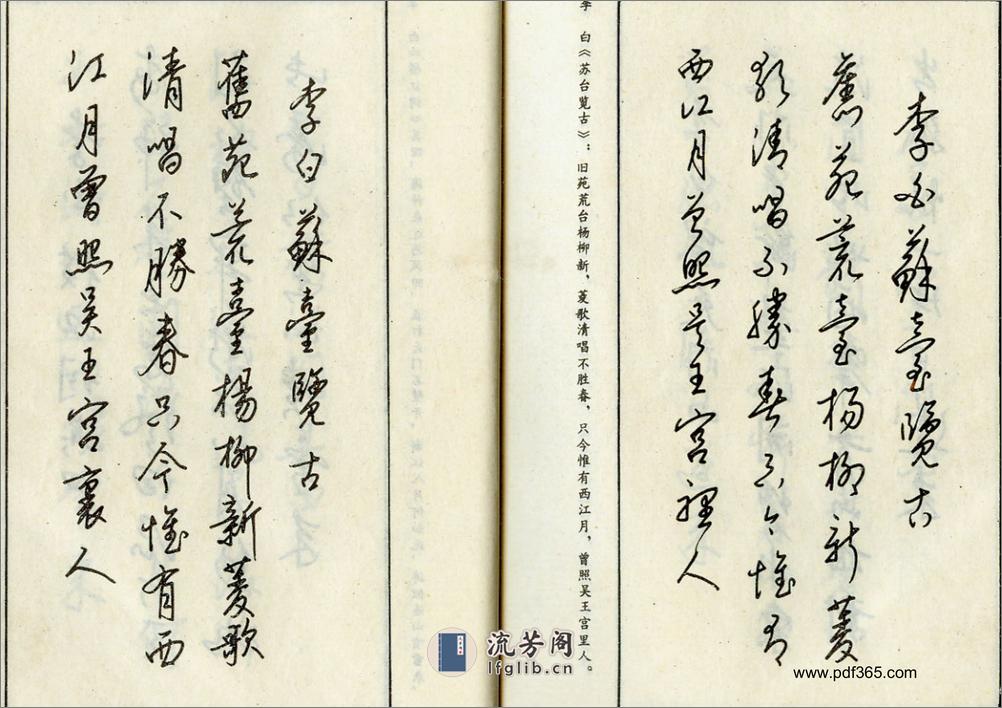 李白蘇臺覽古
舊苑荒臺楊柳新菱
歌清唱不勝春只今惟有
西江月曾照吳王宮裡人
李 白《苏台览古》：旧苑荒台杨柳新，菱歌清唱不胜春，只今惟有西江月，曾照吴王宫里人。
李白蘇臺覽古
舊苑荒臺楊柳新菱歌
清唱不勝春只今惟有西
江月曾照吳王宮裏人
流芳阁
lfglib.cn
www.pdf365.com